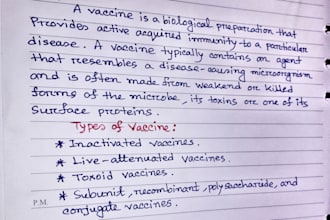 A vaccine is a biological preparation that
Provides active acquired immunity to a particular
disease. A vaccine typically contains an agent
that resembles a disease-causing microorganism
and is often made from weakend or killed
forms of the microbe, its toxins or one of its
Surface proteins.
Types of Vaccine:
* Inactivated vaccines.
* Live-attenuated vaccines.
* Toxoid vaccines.
* Subunit, recombinant, polysaccharide, and
conjugate vaccines.
P.M.